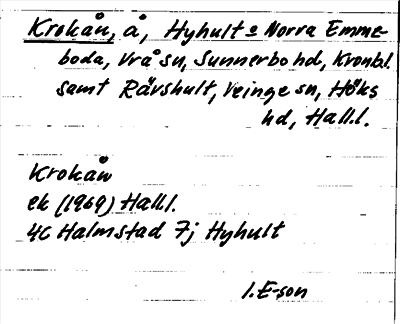 Krokån, å, Hyhult o Norra Emme-
boda, Vrå sn, Sunnerbo hd, Kronbl.
samt Rävshult, Veinge sn, Höks
hd, Hall.l.
Krokån
ek (1969) Hall.l.
4C Halmstad 7j Hyhult
I. E-son